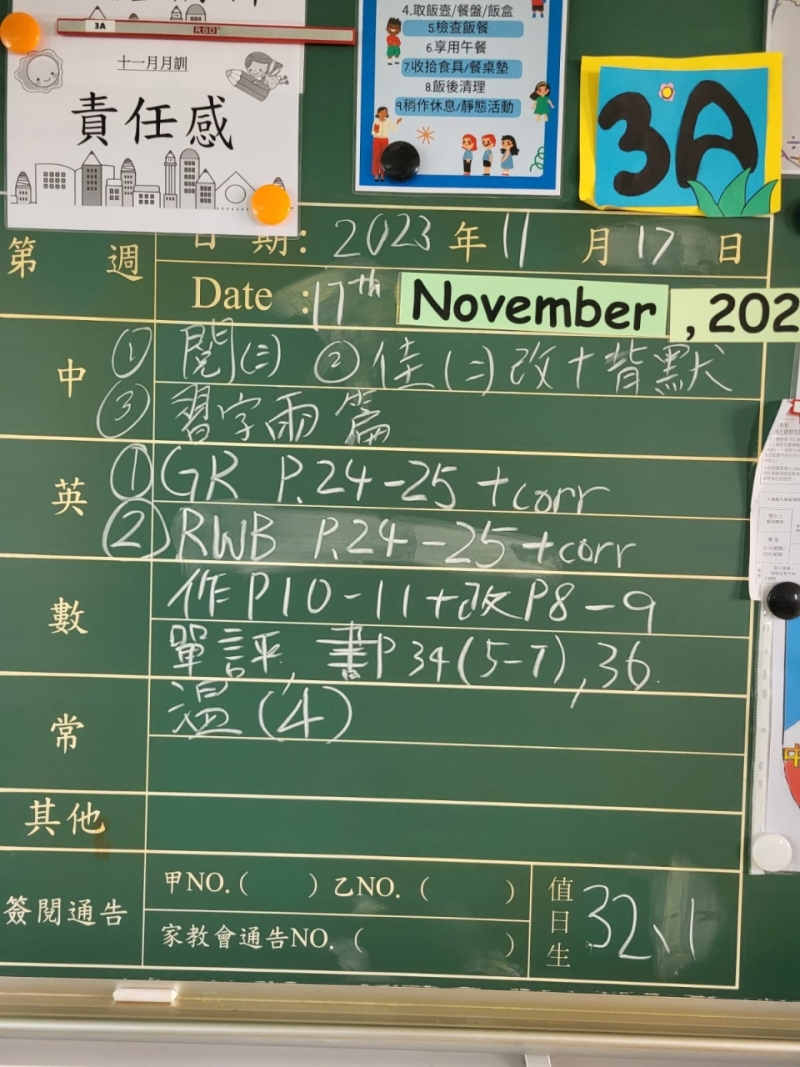 3A
RBD
十一月月訓
責任感
4.取飯壺/餐盤/飯盒
5.檢查飯餐
6.享用午餐
7.收拾食具/餐桌墊
8.飯後清理
9.稍作休息/靜態活動
3A
第 週
日 期: 2023 年 11 月 17 日
Date : 17th November , 202
中
① 閱(三) ② 佳(二)改+背默
③ 習字兩篇
英
① GR P.24-25 +corr
② RWB P.24-25 +corr
數
作P10-11+改P8-9
單評, 書P34(5-7),36.
常
溫(4)
其他
簽閱通告
甲NO.( ) 乙NO.( )
家教會通告NO.( )
值日生
32、1